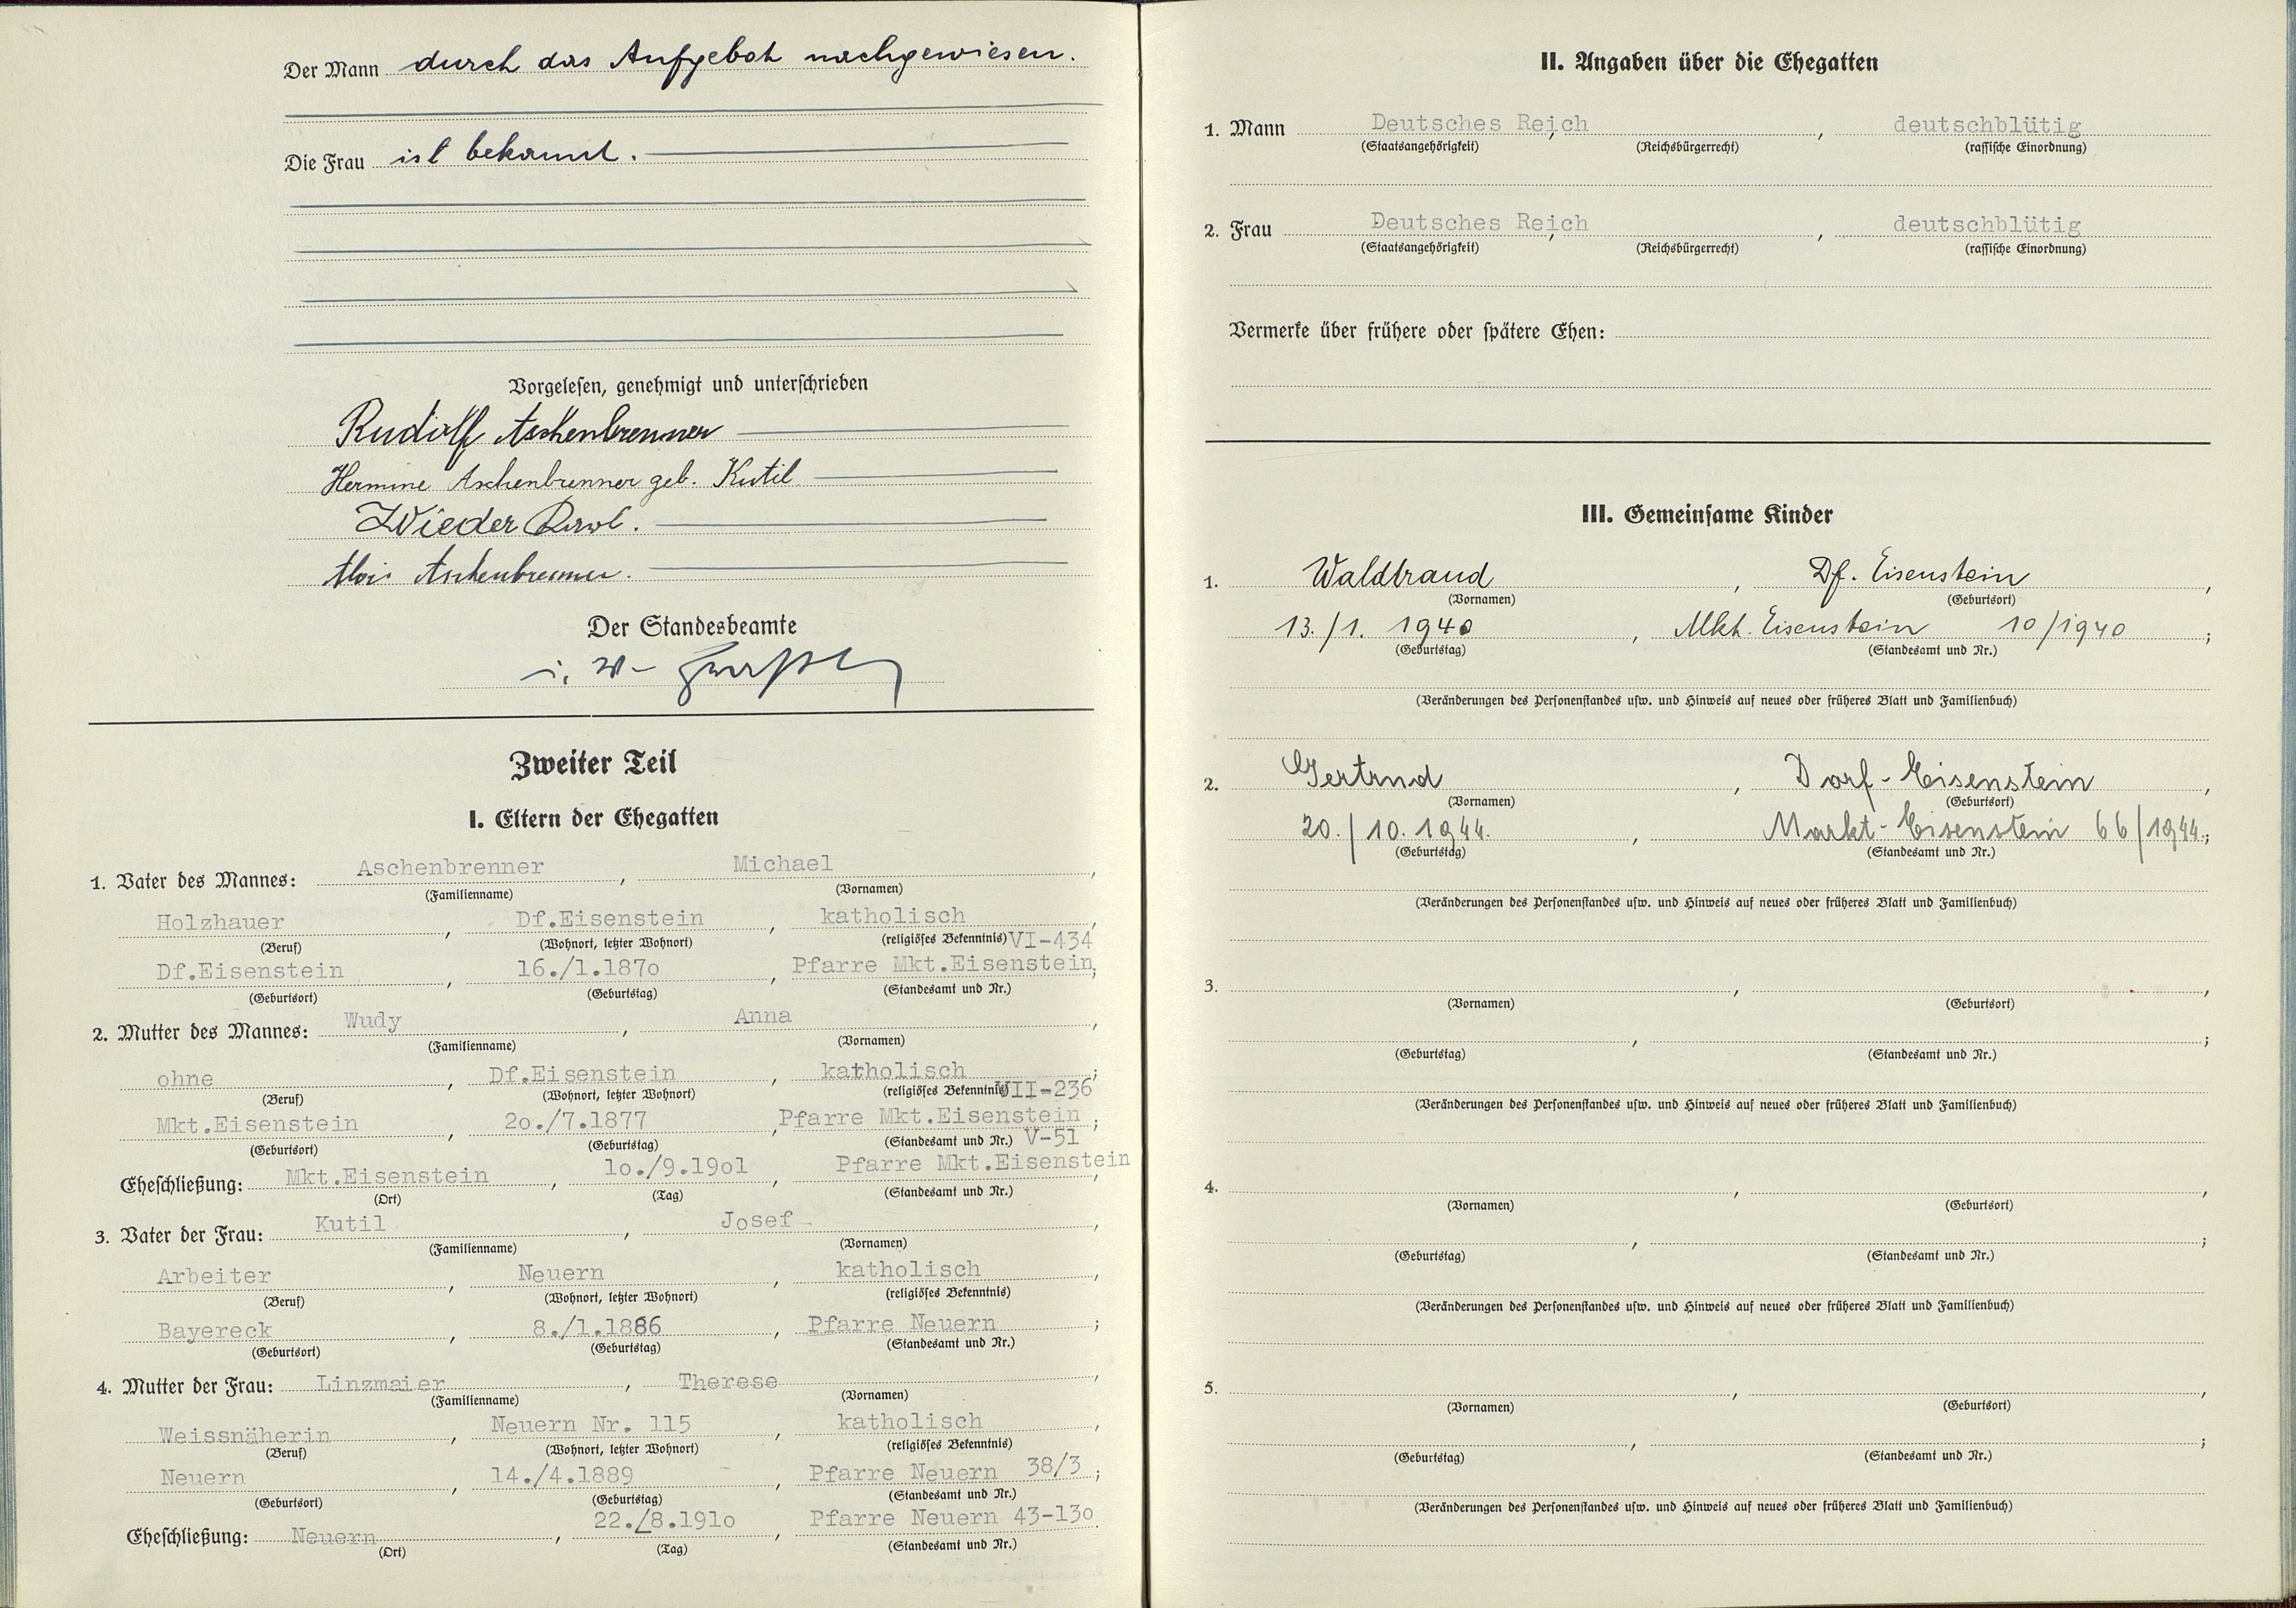 Der Mann durch das Aufgebot nachgewiesen.
Die Frau ist bekannt.
Vorgelesen, genehmigt und unterschrieben
Rudolf Aschenbrenner
Hermine Aschenbrenner geb. Kutil
Wieder
Alois Aschenbrenner.
Der Standesbeamte
Zweiter Teil
I. Eltern der Ehegatten
1. Vater des Mannes: Aschenbrenner, Michael,
(Familienname) (Vornamen)
Holzhauer, Df.Eisenstein, katholisch,
(Beruf) (Wohnort, letzter Wohnort) (religiöses Bekenntnis) VI-434
Df.Eisenstein, 16./1.187o, Pfarre Mkt.Eisenstein;
(Geburtsort) (Geburtstag) (Standesamt und Nr.)
2. Mutter des Mannes: Wudy, Anna,
(Familienname) (Vornamen)
ohne, Df.Eisenstein, katholisch;
(Beruf) (Wohnort, letzter Wohnort) (religiöses Bekenntnis) VII-236
Mkt.Eisenstein, 2o./7.1877, Pfarre Mkt.Eisenstein;
(Geburtsort) (Geburtstag) (Standesamt und Nr.) V-51
Eheschließung: Mkt.Eisenstein, 1o./9.19o1, Pfarre Mkt.Eisenstein,
(Ort) (Tag) (Standesamt und Nr.)
3. Vater der Frau: Kutil, Josef,
(Familienname) (Vornamen)
Arbeiter, Neuern, katholisch,
(Beruf) (Wohnort, letzter Wohnort) (religiöses Bekenntnis)
Bayereck, 8./1.1886, Pfarre Neuern;
(Geburtsort) (Geburtstag) (Standesamt und Nr.)
4. Mutter der Frau: Linzmaier, Therese,
(Familienname) (Vornamen)
Weissnäherin, Neuern Nr. 115, katholisch,
(Beruf) (Wohnort, letzter Wohnort) (religiöses Bekenntnis)
Neuern, 14./4.1889, Pfarre Neuern 38/3;
(Geburtsort) (Geburtstag) (Standesamt und Nr.)
Eheschließung: Neuern, 22./8.191o, Pfarre Neuern 43-13o.
(Ort) (Tag) (Standesamt und Nr.)
II. Angaben über die Ehegatten
1. Mann Deutsches Reich, deutschblütig
(Staatsangehörigkeit) (Reichsbürgerrecht) (rassische Einordnung)
2. Frau Deutsches Reich, deutschblütig
(Staatsangehörigkeit) (Reichsbürgerrecht) (rassische Einordnung)
Vermerke über frühere oder spätere Ehen:
III. Gemeinsame Kinder
1. Waldtraud, Df. Eisenstein,
(Vornamen) (Geburtsort)
13./1. 1940, Mkt. Eisenstein 10/1940;
(Geburtstag) (Standesamt und Nr.)
(Veränderungen des Personenstandes usw. und Hinweis auf neues oder früheres Blatt und Familienbuch)
2. Gertrud, Dorf-Eisenstein,
(Vornamen) (Geburtsort)
20./10.1944., Markt-Eisenstein 66/1944.;
(Geburtstag) (Standesamt und Nr.)
(Veränderungen des Personenstandes usw. und Hinweis auf neues oder früheres Blatt und Familienbuch)
3. , ,
(Vornamen) (Geburtsort)
, ;
(Geburtstag) (Standesamt und Nr.)
(Veränderungen des Personenstandes usw. und Hinweis auf neues oder früheres Blatt und Familienbuch)
4. , ,
(Vornamen) (Geburtsort)
, ;
(Geburtstag) (Standesamt und Nr.)
(Veränderungen des Personenstandes usw. und Hinweis auf neues oder früheres Blatt und Familienbuch)
5. , ,
(Vornamen) (Geburtsort)
, ;
(Geburtstag) (Standesamt und Nr.)
(Veränderungen des Personenstandes usw. und Hinweis auf neues oder früheres Blatt und Familienbuch)